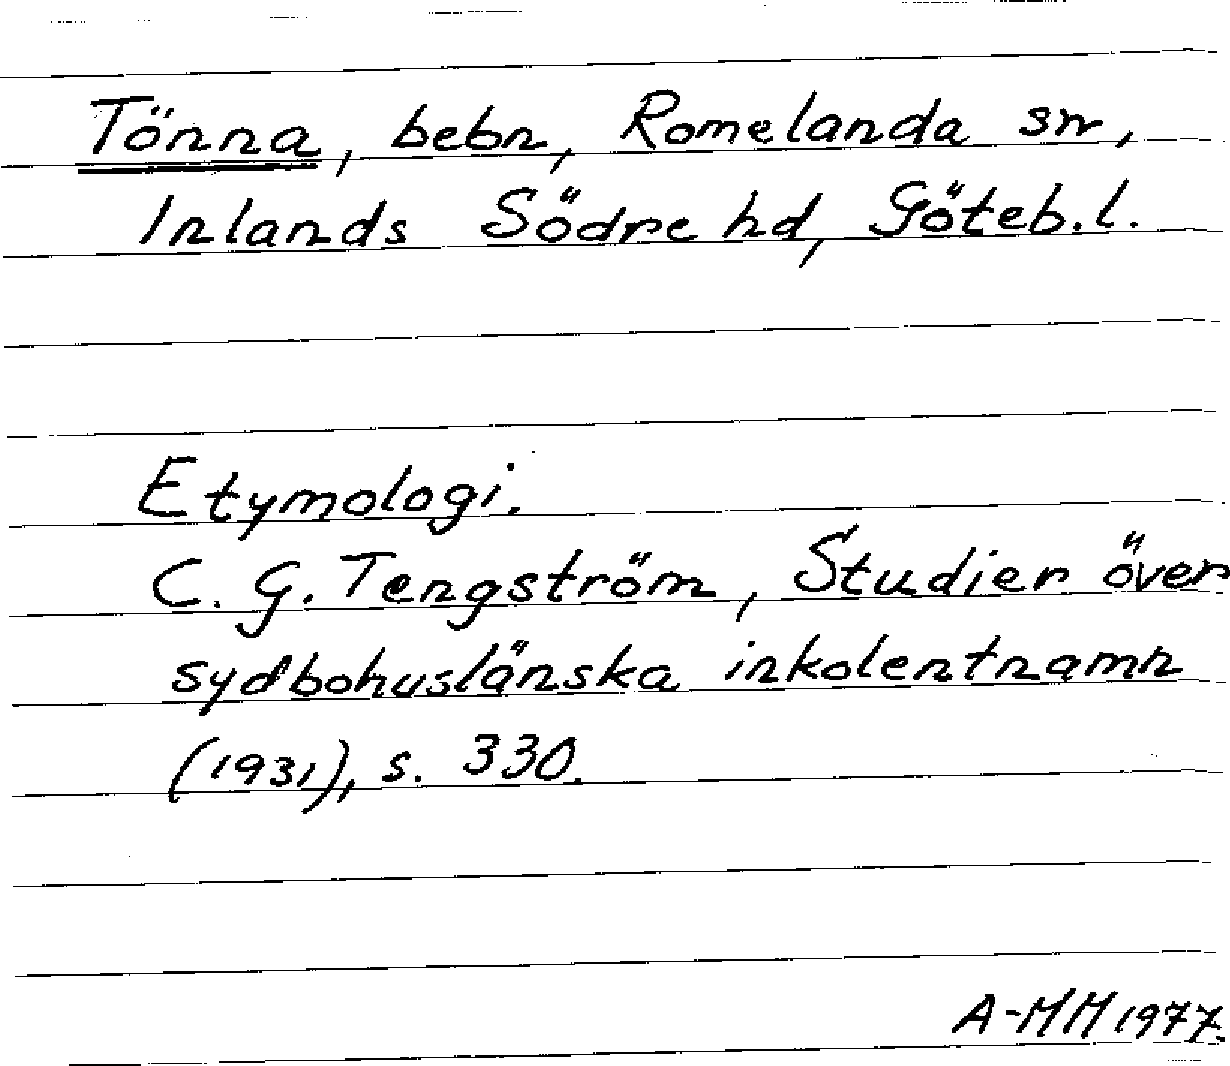 Tönna, bebn, Romelanda sn,
Inlands Södre hd, Göteb. l.
Etymologi.
C. G. Tengström, Studier över
sydbohuslänska inkolentnamn
(1931), s. 330.
A-MM 1977.